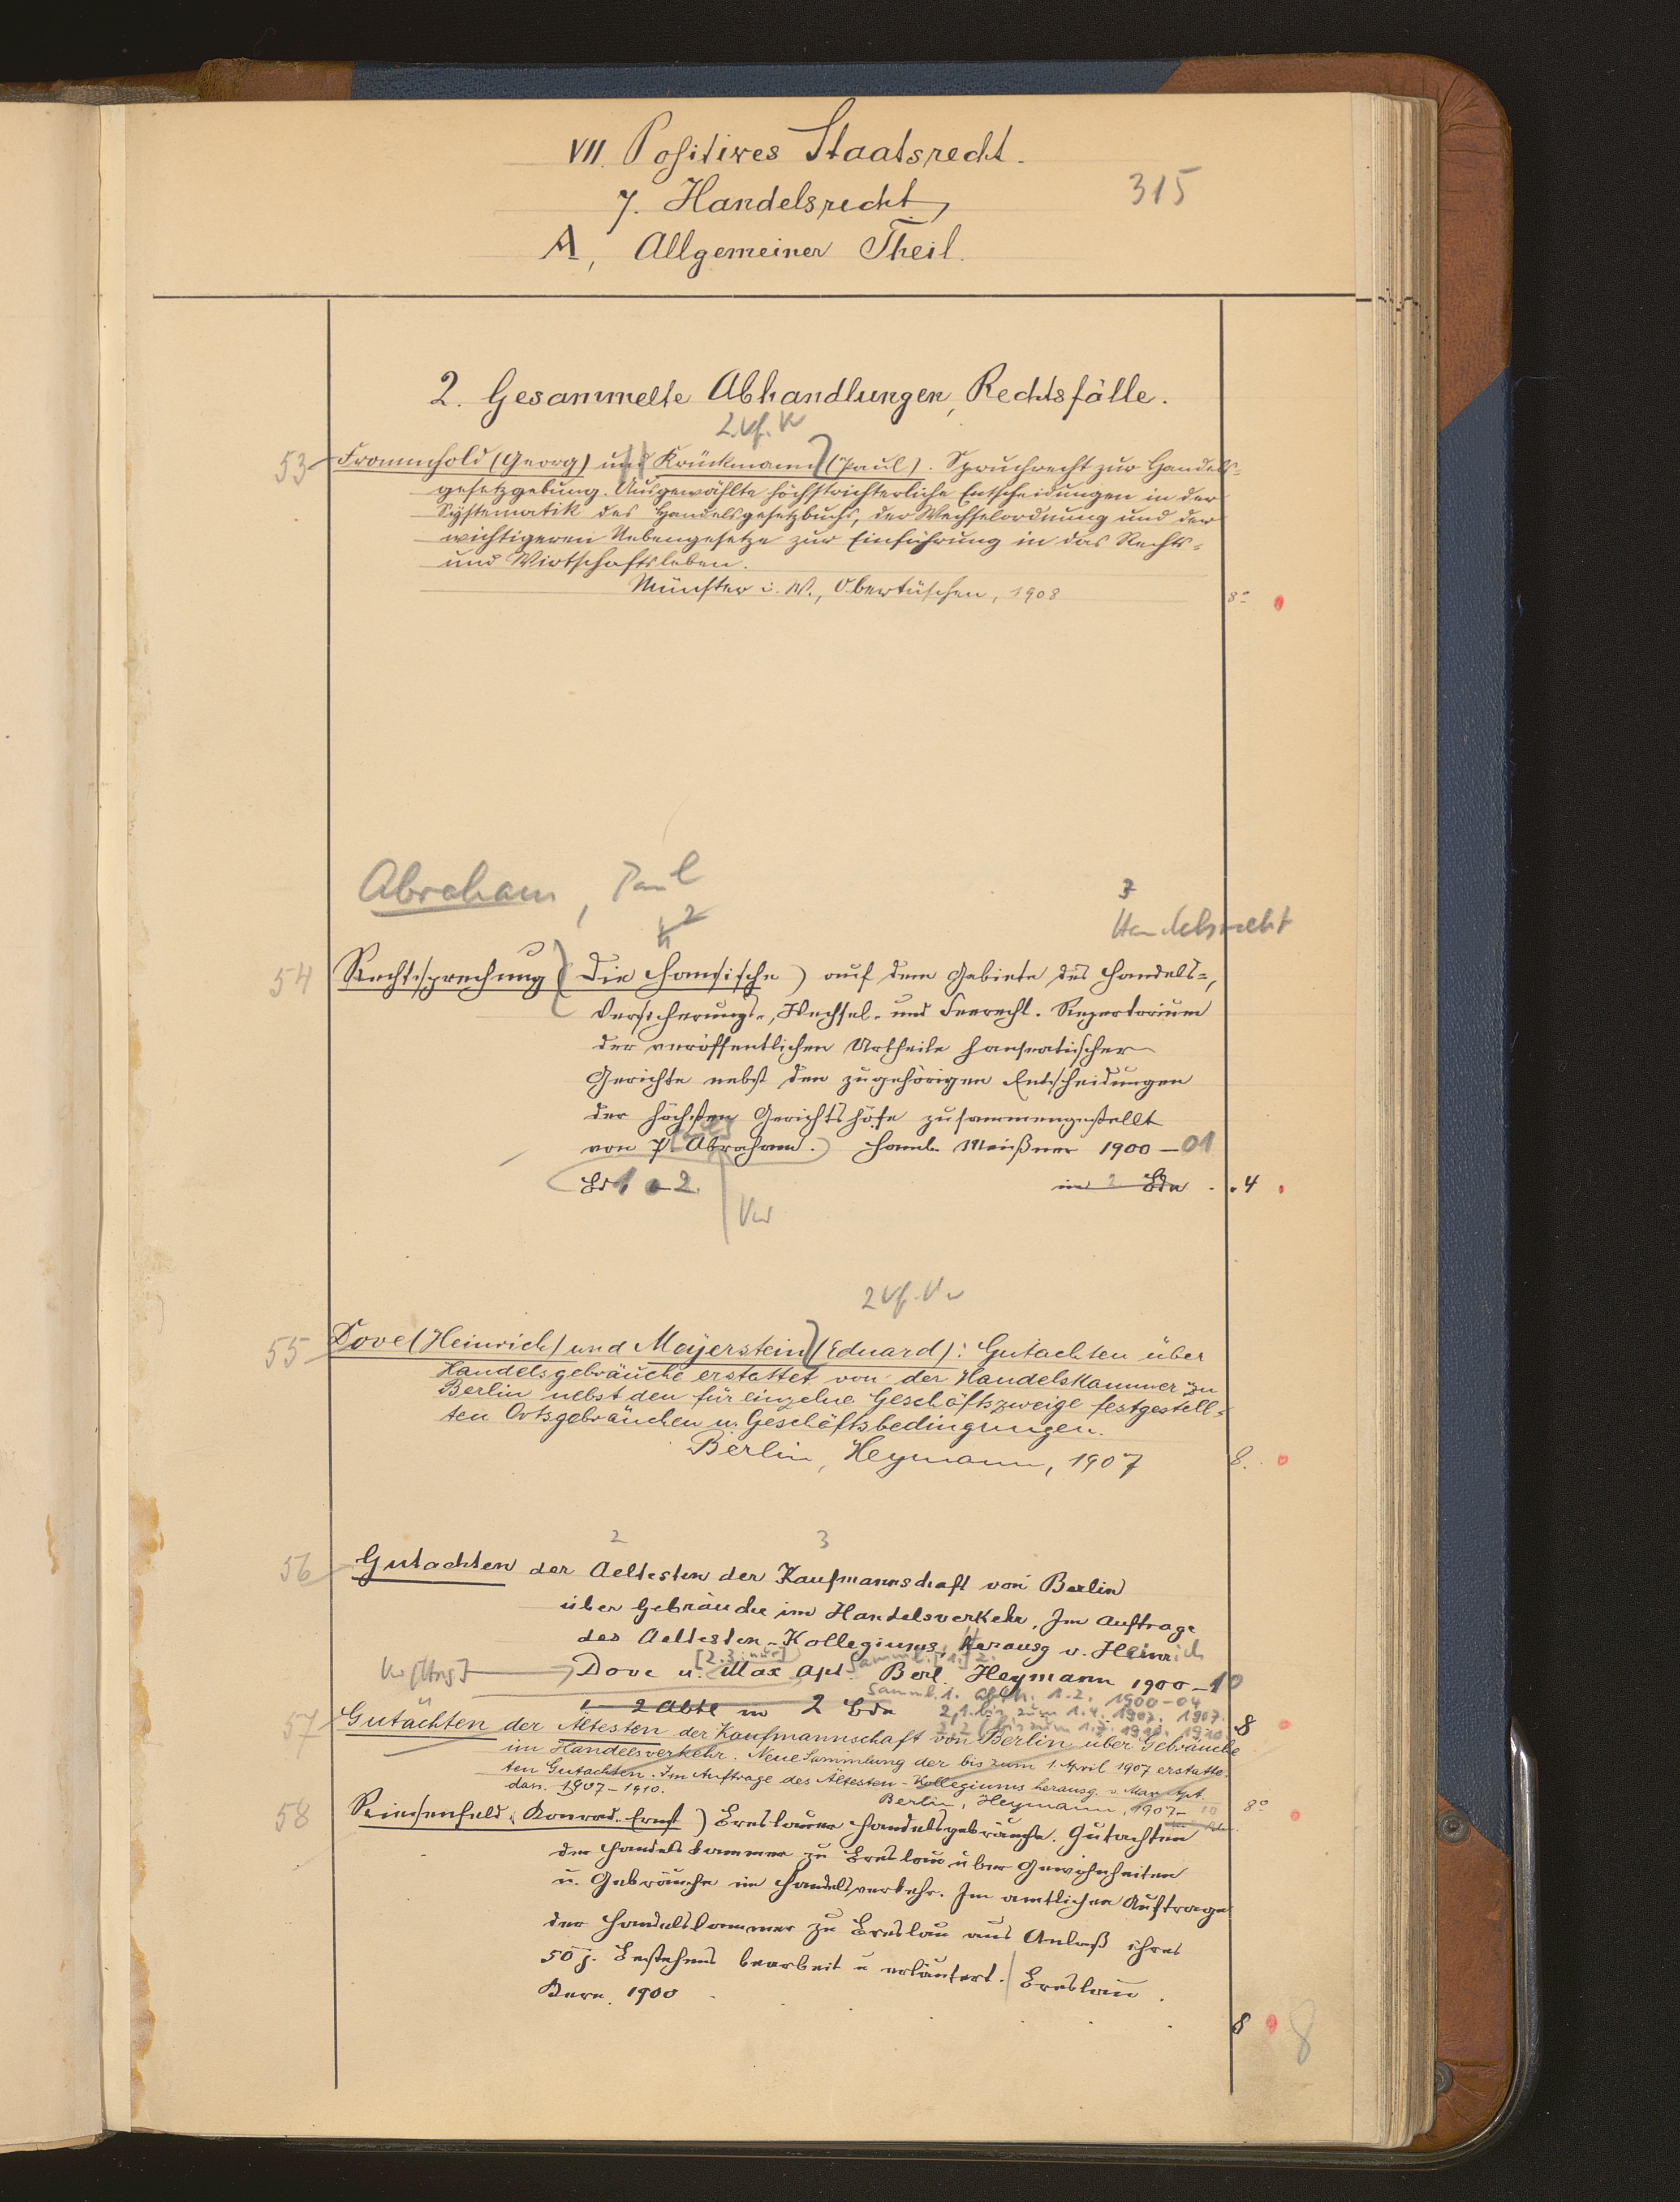 VII. Positives Staatsrecht.
315
7. Handelsrecht
A, Allgemeiner Theil.
2. Gesammelte Abhandlungen, Rechtsfälle.
2. Vf. Vw
53 Frommhold (Georg) und Krückmann (Paul). Spruchrecht zur Handels=
gesetzgebung. Ausgewählte höchstrichterliche Entscheidungen in der
Systematik des Handelsgesetzbuchs, der Wechselordnung und der
wichtigeren Nebengesetze zur Einführung in das Rechts=
und Wirtschaftsleben.
Münster i. W., Obertüschen, 1908
8°
Abraham, Paul
3
Handelsrecht
2
54 Rechtsprechung (Die Hansische) auf dem Gebiete des Handels=,
Versicherungs-, Wechsel- und Seerecht. Repertorium
der veröffentlichen Urtheile hanseatischer
Gerichte nebst den zugehörigen Entscheidungen
der höchsten Gerichtshöfe zusammengestellt
von P. Abraham. Hamb. Meißner 1900-01
Bd 1-2. in 2 Bdn. 4
Vw
2 Vf. Vw
55 Dove (Heinrich) und Meyerstein (Eduard): Gutachten über
Handelsgebräuche erstattet von der Handelskammer zu
Berlin nebst den für einzelne Geschäftszweige festgestell=
ten Ortsgebräuchen u. Geschäftsbedingungen.
Berlin, Heymann, 1907
8.
2 3
56 Gutachten der Aeltesten der Kaufmannschaft von Berlin
über Gebräuche im Handelsverkehr. Im Auftrage
des Aeltesten-Kollegiums, herausg v. Heinrich
[2.3. nur] Samml. [1.] 2.
Vw [Hrsg] Dove u. Max Apt. Berl. Heymann 1900-10
Samml. 1. Abth. 1.2. 1900-04
1-2 Abtl in 2 Bdn 2,1. bis zum 1.4. 1907. 1907.
2,2 (bis zum 1.7. 1910. 1910 8
57 Gutächten der Ältesten der Kaufmannschaft von Berlin über Gebräuche
im Handelsverkehr. Neue Sammlung der bis zum 1. April 1907 erstatte-
ten Gutachten. Im Auftrage des Ältesten-Kollegiums herausg. v. Max Apt.
dass. 1907-1910. Berlin, Heymann, 1907-10 8°
58 Riesenfeld (Konrad Ernst) Breslauer Handelsgebräuche. Gutachten
der Handelskammer zu Breslau über Gewohnheiten
u. Gebräuche im Handelsverkehr. Im amtlichen Auftrage
der Handelskammer zu Breslau aus Anlaß ihres
50 j. Bestehens bearbeit u erläutert. Breslau.
Kern. 1900
8
8